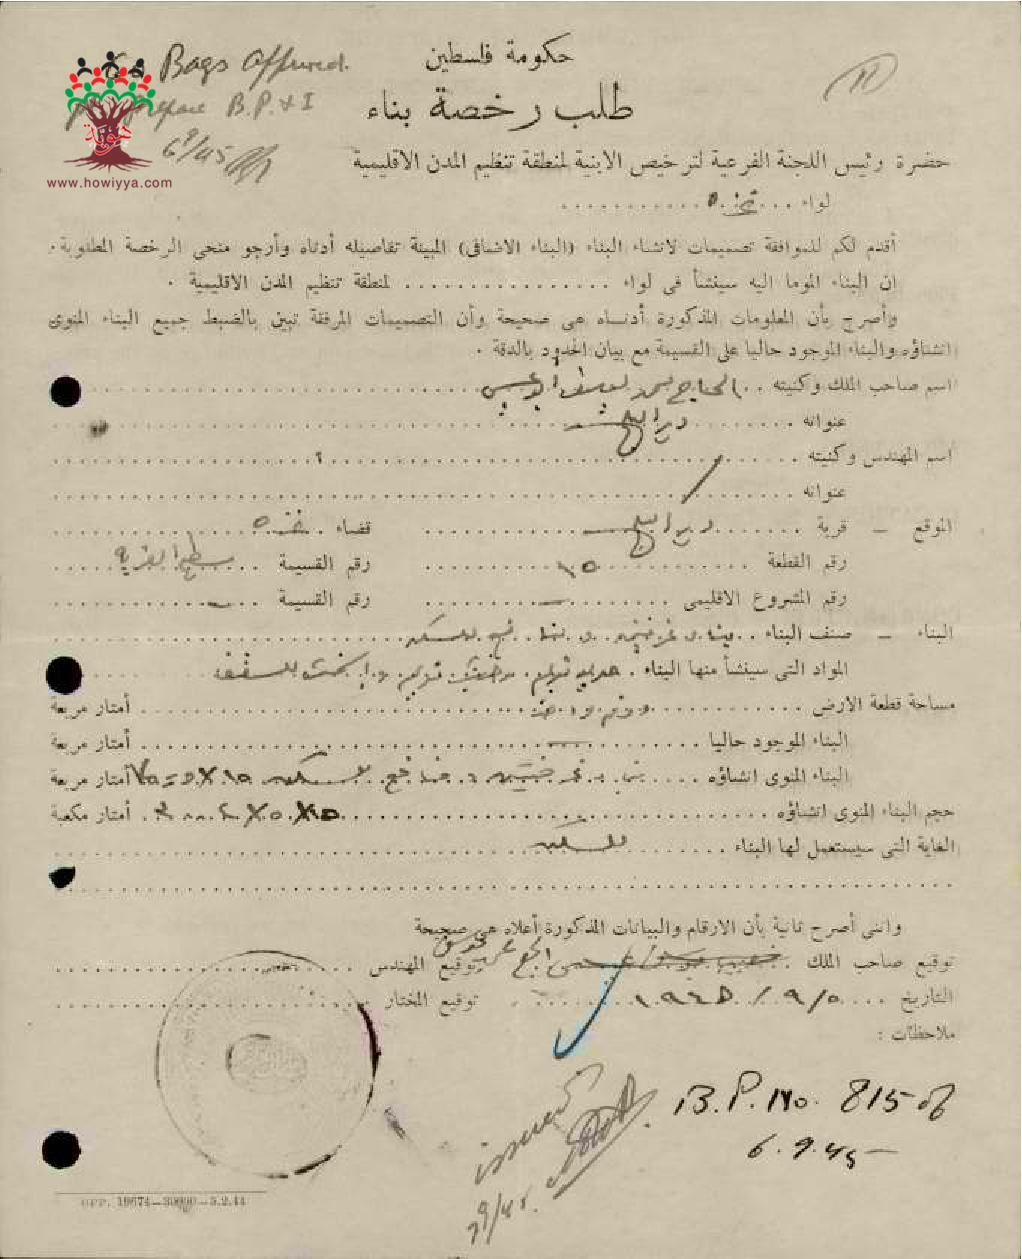 Bags approved.
B.P. & I
6/9/45
هوية
www.howiyya.com
حكومة فلسطين
طلب رخصة بناء
حضرة رئيس اللجنة الفرعية لترخيص الابنية لمنطقة تنظيم المدن الاقليمية
لواء ... غزه ............
أقدم لكم للموافقة تصميمات لانشاء البناء (البناء الاضافى) المبينة تفاصيله أدناه وأرجو منحى الرخصة المطلوبة .
ان البناء الموما اليه سينشأ فى لواء ................ لمنطقة تنظيم المدن الاقليمية .
وأصرح بأن المعلومات المذكورة أدناه هى صحيحة وأن التصميمات المرفقة تبين بالضبط جميع البناء المنوى
انشاؤه والبناء الموجود حاليا على القسيمة مع بيان الحدود بالدقة .
اسم صاحب الملك وكنيته .. الحاج محمد يوسف
عنوانه ........ دير البلح
اسم المهندس وكنيته
عنوانه
الموقع - قرية ....... دير البلح قضاء . غزه
رقم القطعة ١٥ رقم القسيمة سطح القرية
رقم المشروع الاقليمى — رقم القسيمة —
البناء - صنف البناء .. للسكن
المواد التى سينشأ منها البناء . حديد قديم . وخشب قديم . للسقف
مساحة قطعة الارض دونم واحد أمتار مربعة
البناء الموجود حاليا — أمتار مربعة
البناء المنوى انشاؤه للسكن ١٥ X ٥ = ٧٥ أمتار مربعة
حجم البناء المنوى انشاؤه ١٥ X ٥ X ٤ ٣٠٠ أمتار مكعبة
الغاية التى سيستعمل لها البناء للسكن
واننى أصرح ثانية بأن الارقام والبيانات المذكورة أعلاه هى صحيحة
توقيع صاحب الملك توقيع المهندس
التاريخ ٥/٩/١٩٤٥ توقيع المختار
ملاحظات :
B.P. No. 815 of
6.9.45
issued
GPP. 19674—30000—5.2.44